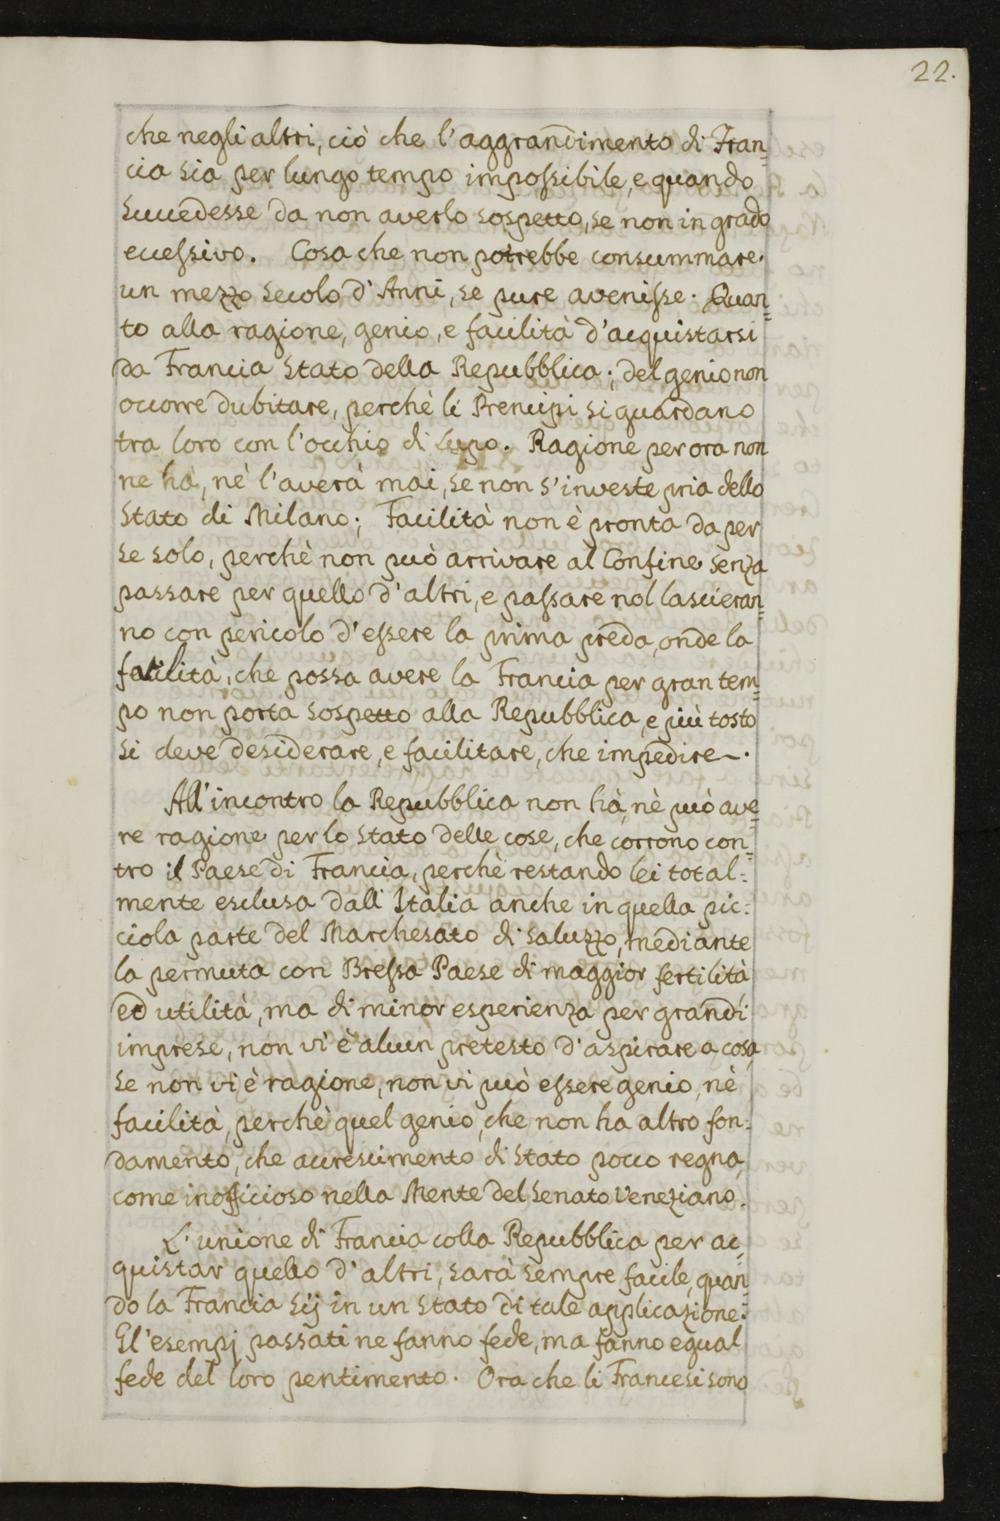 22.
che negli altri, ciò che l'aggrandimento di Fran=
cia sia per lungo tempo impossibile, e quando
succedesse da non averlo sospetto, se non in grado
eccessivo. Cosa che non potrebbe consummare.
un mezzo secolo d'Anni, se pure avenisse. Quan=
to alla ragione, genio, e facilità d'acquistarsi
da Francia Stato della Repubblica; del genio non
occorre dubitare, perchè li Prencipi si guardano
tra loro con l'occhio di Lupo. Ragione per ora non
ne hà, nè l'averà mai, se non s'investe pria dello
Stato di Milano; Facilità non è pronta da per
se solo, perchè non può arrivare al Confine senza
passare per quello d'altri, e passare nol lascieran=
no con pericolo d'essere la prima preda, onde la
facilità, che possa avere la Francia per gran tem=
po non porta sospetto alla Repubblica, e più tosto
si deve desiderare, e facilitare, che impedire.
All'incontro la Repubblica non hà, nè può ave=
re ragione per lo stato delle cose, che corrono con=
tro il Paese di Francia, perchè restando lei total=
mente esclusa dall'Italia anche in quella pic=
ciola parte del Marchesato di Saluzzo, mediante
la permuta con Bressa Paese di maggior fertilità
ed utilità, ma di minor esperienza per grandi
imprese, non vi è alcun pretesto d'aspirare a cosa,
se non vi è ragione, non vi può essere genio, nè
facilità, perchè quel genio, che non ha altro fon=
damento, che accrescimento di Stato pocco regna,
come inofficioso nella Mente del Senato Veneziano.
L'unione di Francia colla Repubblica per ac=
quistar quello d'altri, sarà sempre facile, quan=
do la Francia sij in un stato di tale applicazione:
Gl'esempj passati ne fanno fede, ma fanno egual
fede del loro pentimento. Ora che li Francesi sono